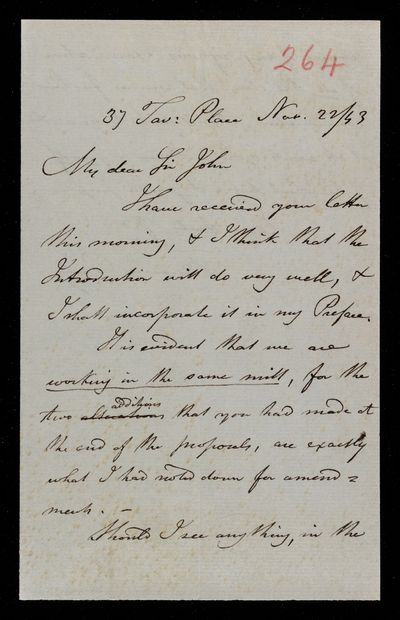 264
37 Tav: Place Nov. 22/43
My dear Sir John
I have received your letter
this morning, & I think that the
Introduction will do very well, &
I shall incorporate it in my Preface.
It is evident that we are
working in the same mill, for the
additions
two alterations that you had made at
the end of the proposals, are exactly
what I had noted down for amend=
ments. –
Should I see anything, in the